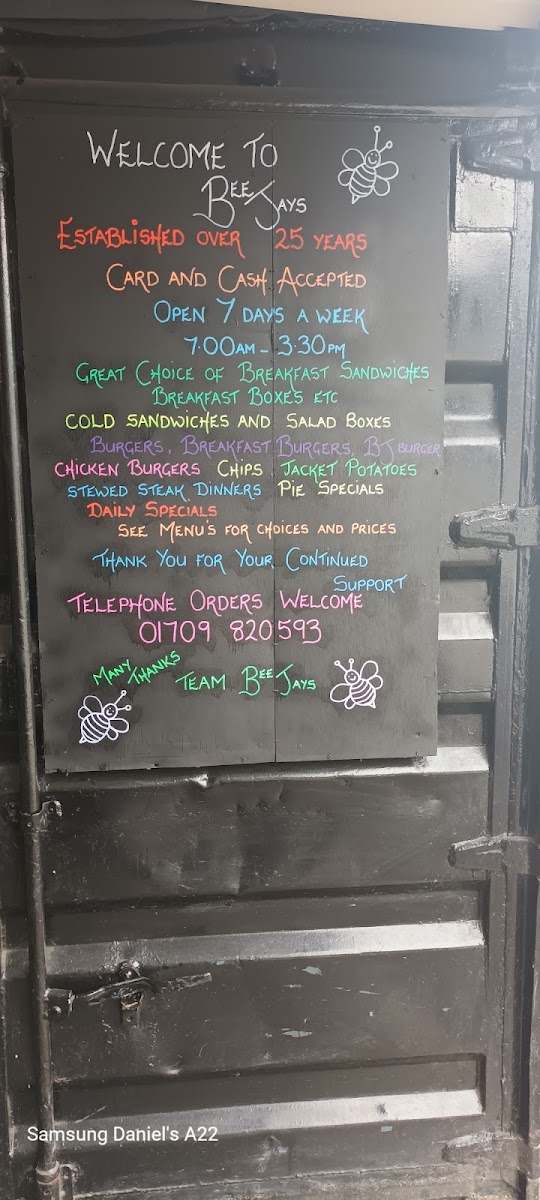 WELCOME TO
BEEJAYS
ESTABLISHED OVER 25 YEARS
CARD AND CASH ACCEPTED
OPEN 7 DAYS A WEEK
7.00AM - 3.30PM
GREAT CHOICE OF BREAKFAST SANDWICHES
BREAKFAST BOXE'S ETC
COLD SANDWICHES AND SALAD BOXES
BURGERS, BREAKFAST BURGERS, BJ BURGER
CHICKEN BURGERS CHIPS JACKET POTATOES
STEWED STEAK DINNERS PIE SPECIALS
DAILY SPECIALS
SEE MENU'S FOR CHOICES AND PRICES
THANK YOU FOR YOUR CONTINUED
SUPPORT
TELEPHONE ORDERS WELCOME
01709 820593
MANY THANKS
TEAM BEEJAYS
Samsung Daniel's A22